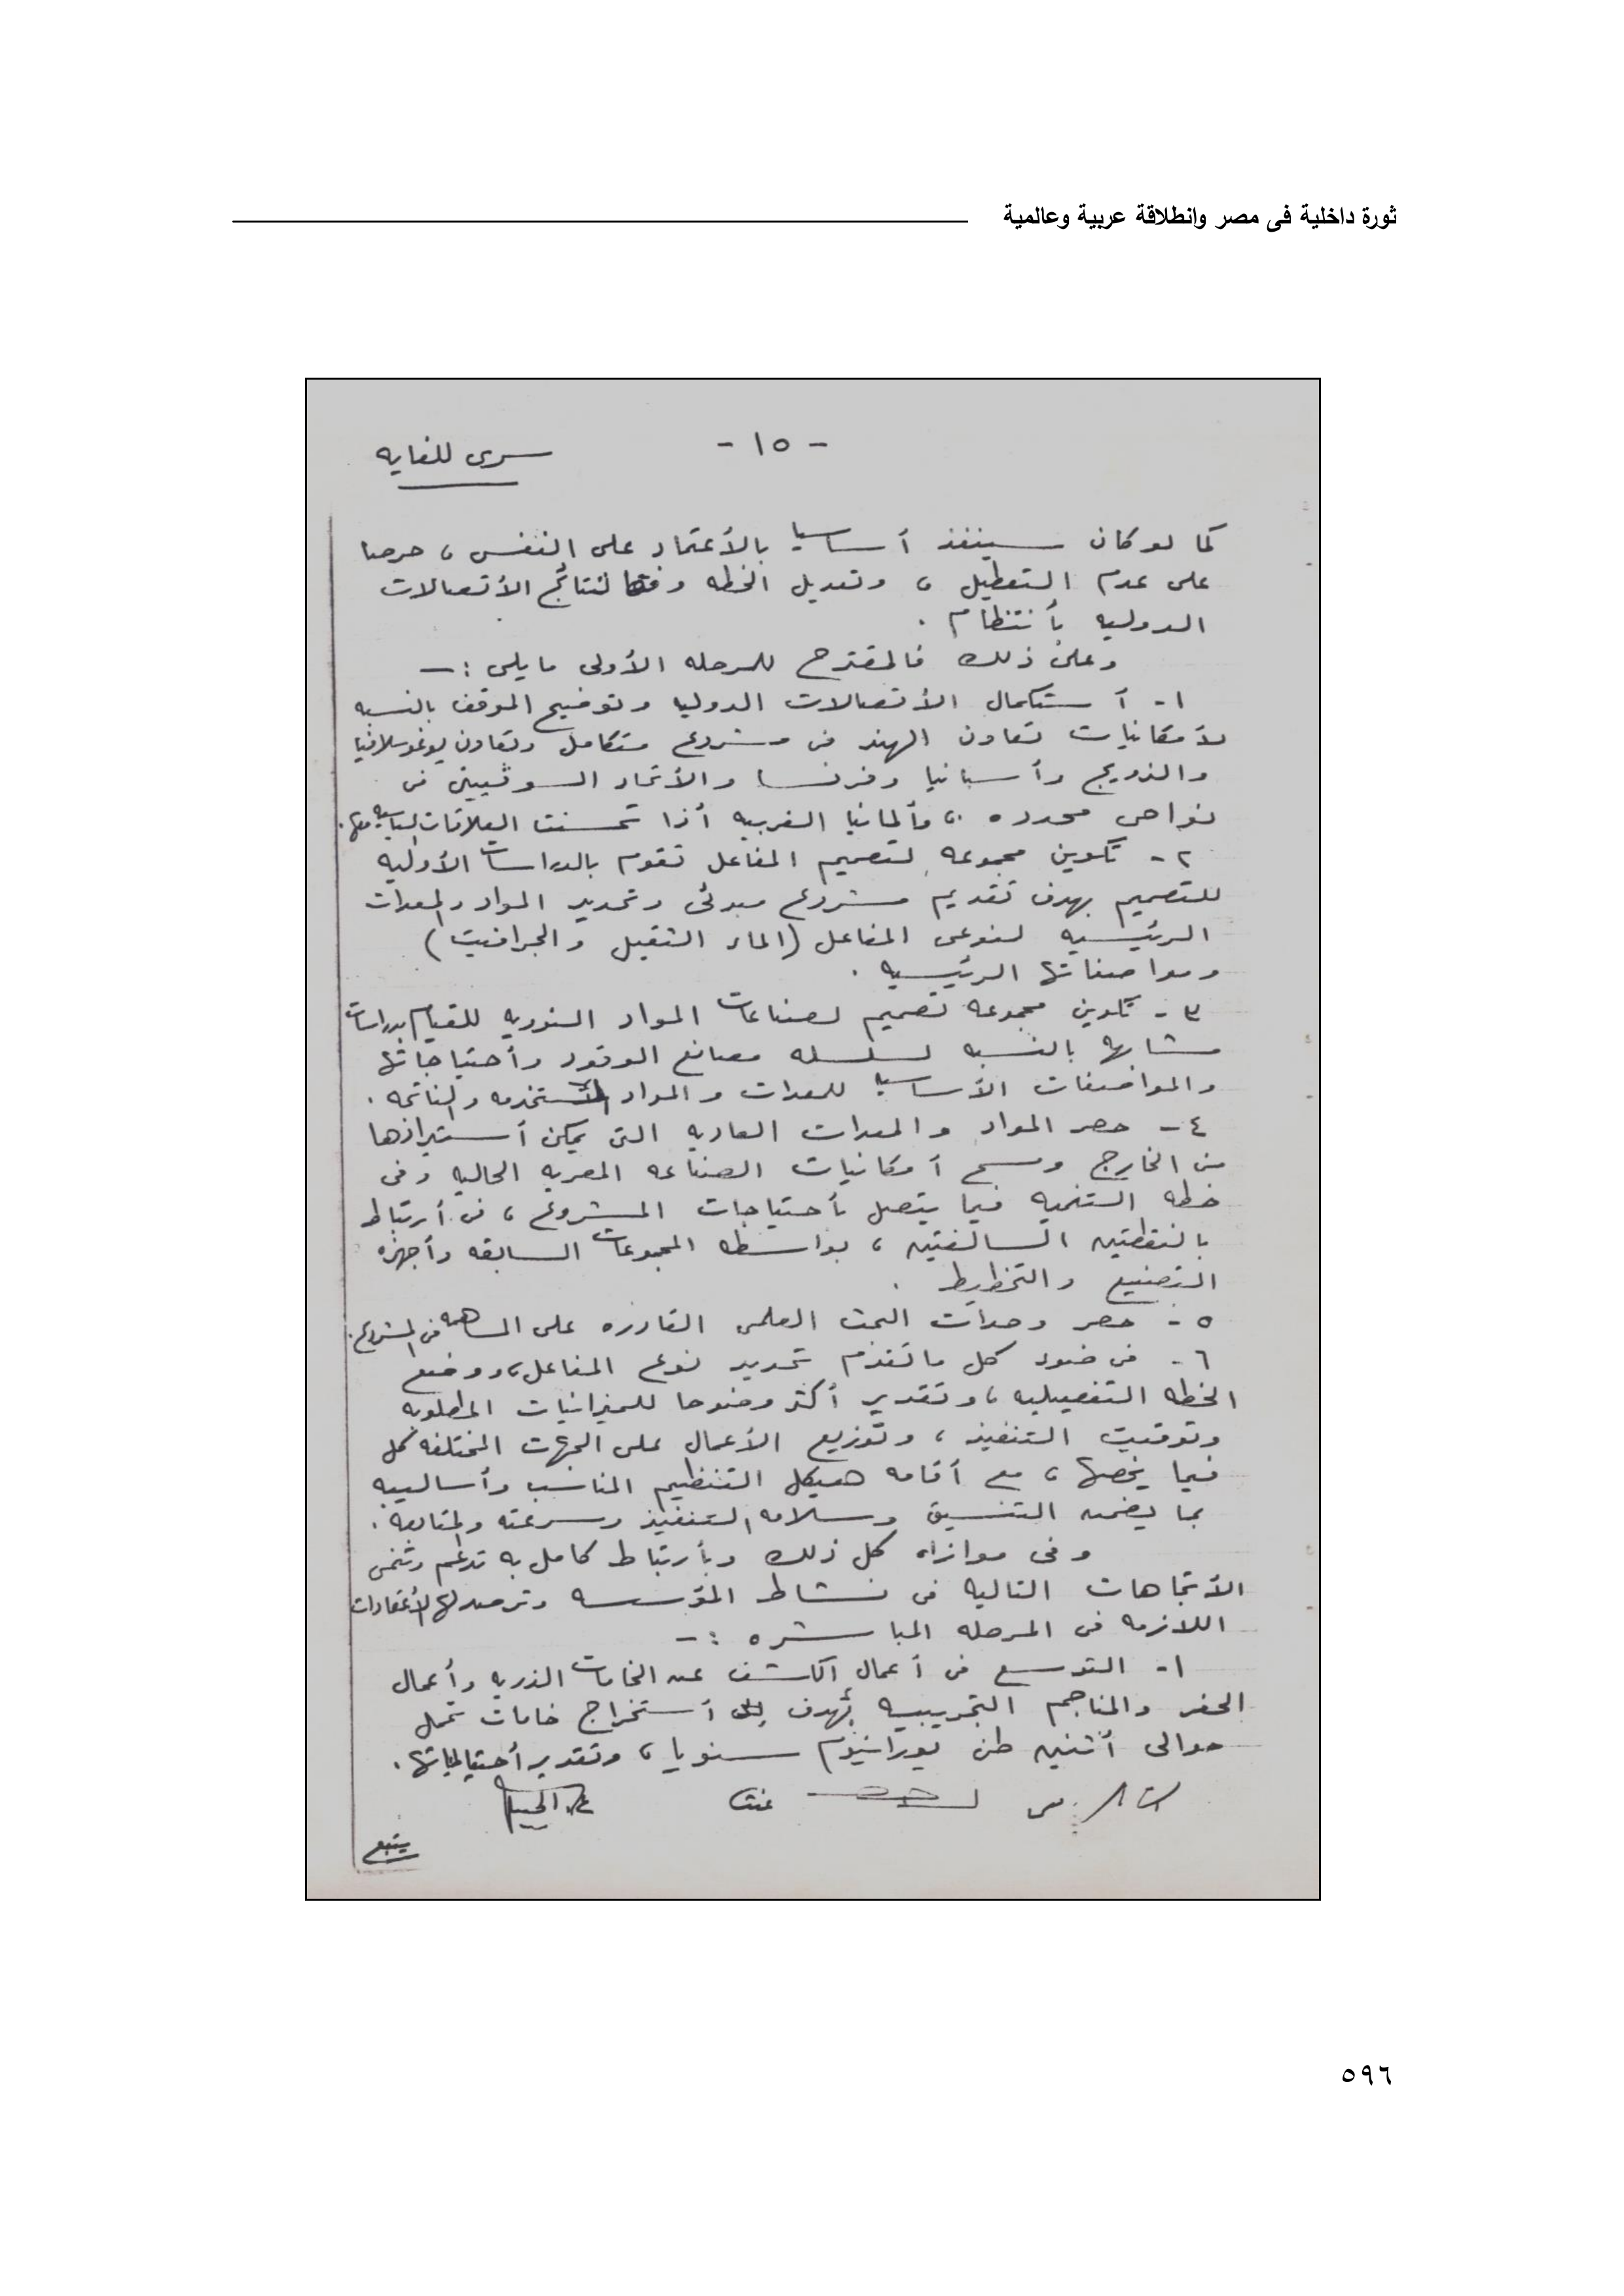 ثورة داخلية فى مصر وانطلاقة عربية وعالمية
- ١٥ -
سرى للغايه
كما لو كان سينفذ أساسيا بالأعتماد على النفس ، حرصا
على عدم التعطيل ، وتعديل الخطه وفقا لنتائج الأتصالات
الدوليه بأنتظام .
وعلى ذلك فالمقترح للمرحله الأولى مايلى :ـ
١- أستكمال الأتصالات الدوليه وتوضيح الموقف بالنسبه
لأمكانيات تعاون الهند فى مشروع متكامل وتعاون يوغوسلافيا
والنرويج وأسبانيا وفرنسا والأتحاد السوفييتى فى
نواحى محدده ، وألمانيا الغربيه أذا تحسنت العلاقات السياسيه معها .
٢- تكوين مجموعه لتصميم المفاعل تقوم بالدراسات الأوليه
للتصميم بهدف تقديم مشروع مبدئى وتحديد المواد والمعدات
الرئيسيه لنوعى المفاعل (الماء الثقيل والجرافيت)
ومواصفاتها الرئيسيه .
٣- تكوين مجموعه تصميم لصناعات المواد النوويه للقيام بدراسات
مشابهه بالنسبه لسلسله مصانع الوقود وأحتياجاتها
والمواصفات الأساسيه للمعدات والمواد المستخدمه والناتجه .
٤- حصر المواد والمعدات العاديه التى يمكن أستيرادها
من الخارج ومسح أمكانيات الصناعه المصريه الحاليه وفى
خطه التنميه فيما يتصل بأحتياجات المشروع ، فى أرتباط
بالنقطتين السالفتين ، بواسطه المجموعات السابقه وأجهزه
التصنيع والتخطيط .
٥- حصر وحدات البحث العلمى القادره على المساهمه فى المشروع .
٦- فى ضوء كل ماتقدم تحديد نوع المفاعل ، ووضع
الخطه التفصيليه ، وتقدير أكثر وضوحا للميزانيات المطلوبه
وتوقيت التنفيذ ، وتوزيع الأعمال على الجهات المختلفه كل
فيما يخصها ، مع أقامه هيكل التنظيم المناسب وأساليبه
بما يضمن التنسيق وسلامه التنفيذ وسرعته والمتابعه .
وفى موازاه كل ذلك وبأرتباط كامل به تدعم وتنمى
الأتجاهات التاليه فى نشاط المؤسسه وترصد لها الأعتمادات
اللازمه فى المرحله المباشره :ـ
١- التوسع فى أعمال الكشف عن الخامات الذريه وأعمال
الحفر والمناجم التجريبيه بهدف أستخراج خامات تحمل
حوالى أثنين طن يورانيوم سنويا ، وتقدير أحتياطياتها .
يتبع
٥٩٦